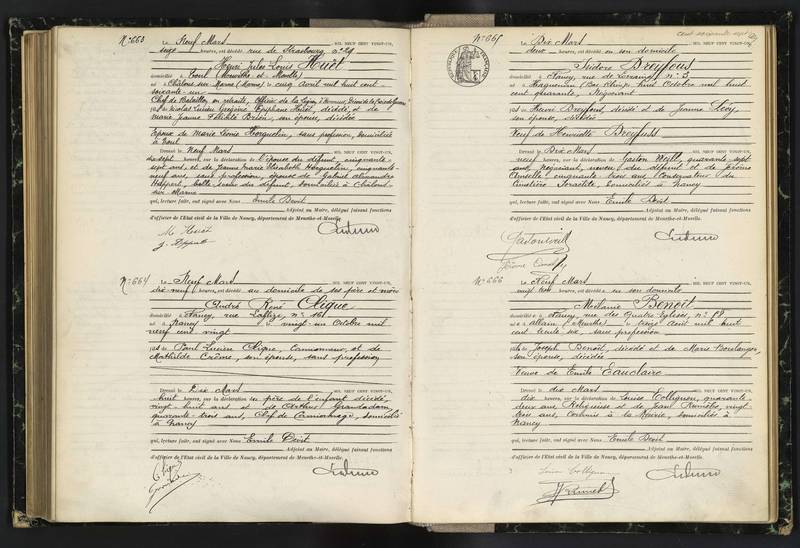 N° 663
Le Neuf Mars MIL NEUF CENT VINGT-UN,
seize heures, est décédé rue de Strasbourg, n° 29
Henri Jules Louis Huet
domicilié à Toul (Meurthe et Moselle)
né à Châlons sur Marne (Marne) le cinq Avril mil huit cent
soixante
Chef de Bataillon en retraite, Officier de la Légion d'Honneur
fils de Nicolas Lucien Huet, décédé, et de
Marie Jeanne Félicité Brion, son épouse, décédée
Epoux de Marie Léonie Horguelin, sans profession, domiciliée
à Toul
Dressé le Neuf Mars MIL NEUF CENT VINGT-UN,
dix sept heures, sur la déclaration de l'épouse du défunt, cinquante
sept ans, et de Jeanne Marie Elisabeth Horguelin, cinquante
neuf ans, sans profession, épouse de Gabriel Alexandre
belle sœur du défunt, domiciliés à Châlons
sur Marne
qui, lecture faite, ont signé avec Nous Emile Devit
Adjoint au Maire, délégué faisant fonctions
d'officier de l'Etat civil de la Ville de Nancy, département de Meurthe-et-Moselle.
M. Huet
N° 664
Le Neuf Mars MIL NEUF CENT VINGT-UN,
dix neuf heures, est décédé au domicile de ses père et mère
André René Clique
domicilié à Nancy, rue Laflize, n° 16
né à Nancy le vingt un Octobre mil
neuf cent vingt
fils de Paul Lucien Clique, Camionneur, et de
Mathilde Crême, son épouse, sans profession
Dressé le Dix Mars MIL NEUF CENT VINGT-UN,
huit heures, sur la déclaration du père de l'enfant décédé,
vingt huit ans et de Arthur Grandadam,
quarante trois ans, Chef de Camionnage, domiciliés
à Nancy
qui, lecture faite, ont signé avec Nous Emile Devit
Adjoint au Maire, délégué faisant fonctions
d'officier de l'Etat civil de la Ville de Nancy, département de Meurthe-et-Moselle.
N° 665
Le Dix Mars MIL NEUF CENT VINGT-UN,
deux heures, est décédé en son domicile
Isidore Dreyfous
domicilié à Nancy, rue de Lorraine, n° 3
né à Haguenau (Bas Rhin) huit Octobre mil huit
cent quarante, Négociant
fils de Henri Dreyfous, décédé et de Jeanne Lévy,
son épouse, décédée
Veuf de Henriette Dreyfuss
Dressé le Dix Mars MIL NEUF CENT VINGT-UN,
neuf heures, sur la déclaration de Gaston Weill, quarante sept
ans, Négociant, neveu du défunt et de Jérôme
cinquante trois ans, Conservateur du
Cimetière Israélite, domiciliés à Nancy
qui, lecture faite, ont signé avec Nous Emile Devit
Adjoint au Maire, délégué faisant fonctions
d'officier de l'Etat civil de la Ville de Nancy, département de Meurthe-et-Moselle.
Gaston Weill
N° 666
Le Neuf Mars MIL NEUF CENT VINGT-UN,
vingt trois heures, est décédée en son domicile
Mélanie Benoit
domiciliée à Nancy, rue des Quatre Eglises, n° 88
née à Allain (Meurthe) le treize Août mil huit
cent trente six, sans profession
fille de Joseph Benoit, décédé et de Marie Boulanger,
son épouse, décédée
Veuve de Emile Eauclaire
Dressé le dix Mars MIL NEUF CENT VINGT-UN,
dix heures, sur la déclaration de Louise Collignon, quarante
deux ans, Religieuse et de Jean vingt
trois ans, Commis à la Mairie, domiciliés à
Nancy
qui, lecture faite, ont signé avec Nous Emile Devit
Adjoint au Maire, délégué faisant fonctions
d'officier de l'Etat civil de la Ville de Nancy, département de Meurthe-et-Moselle.
Louise Collignon